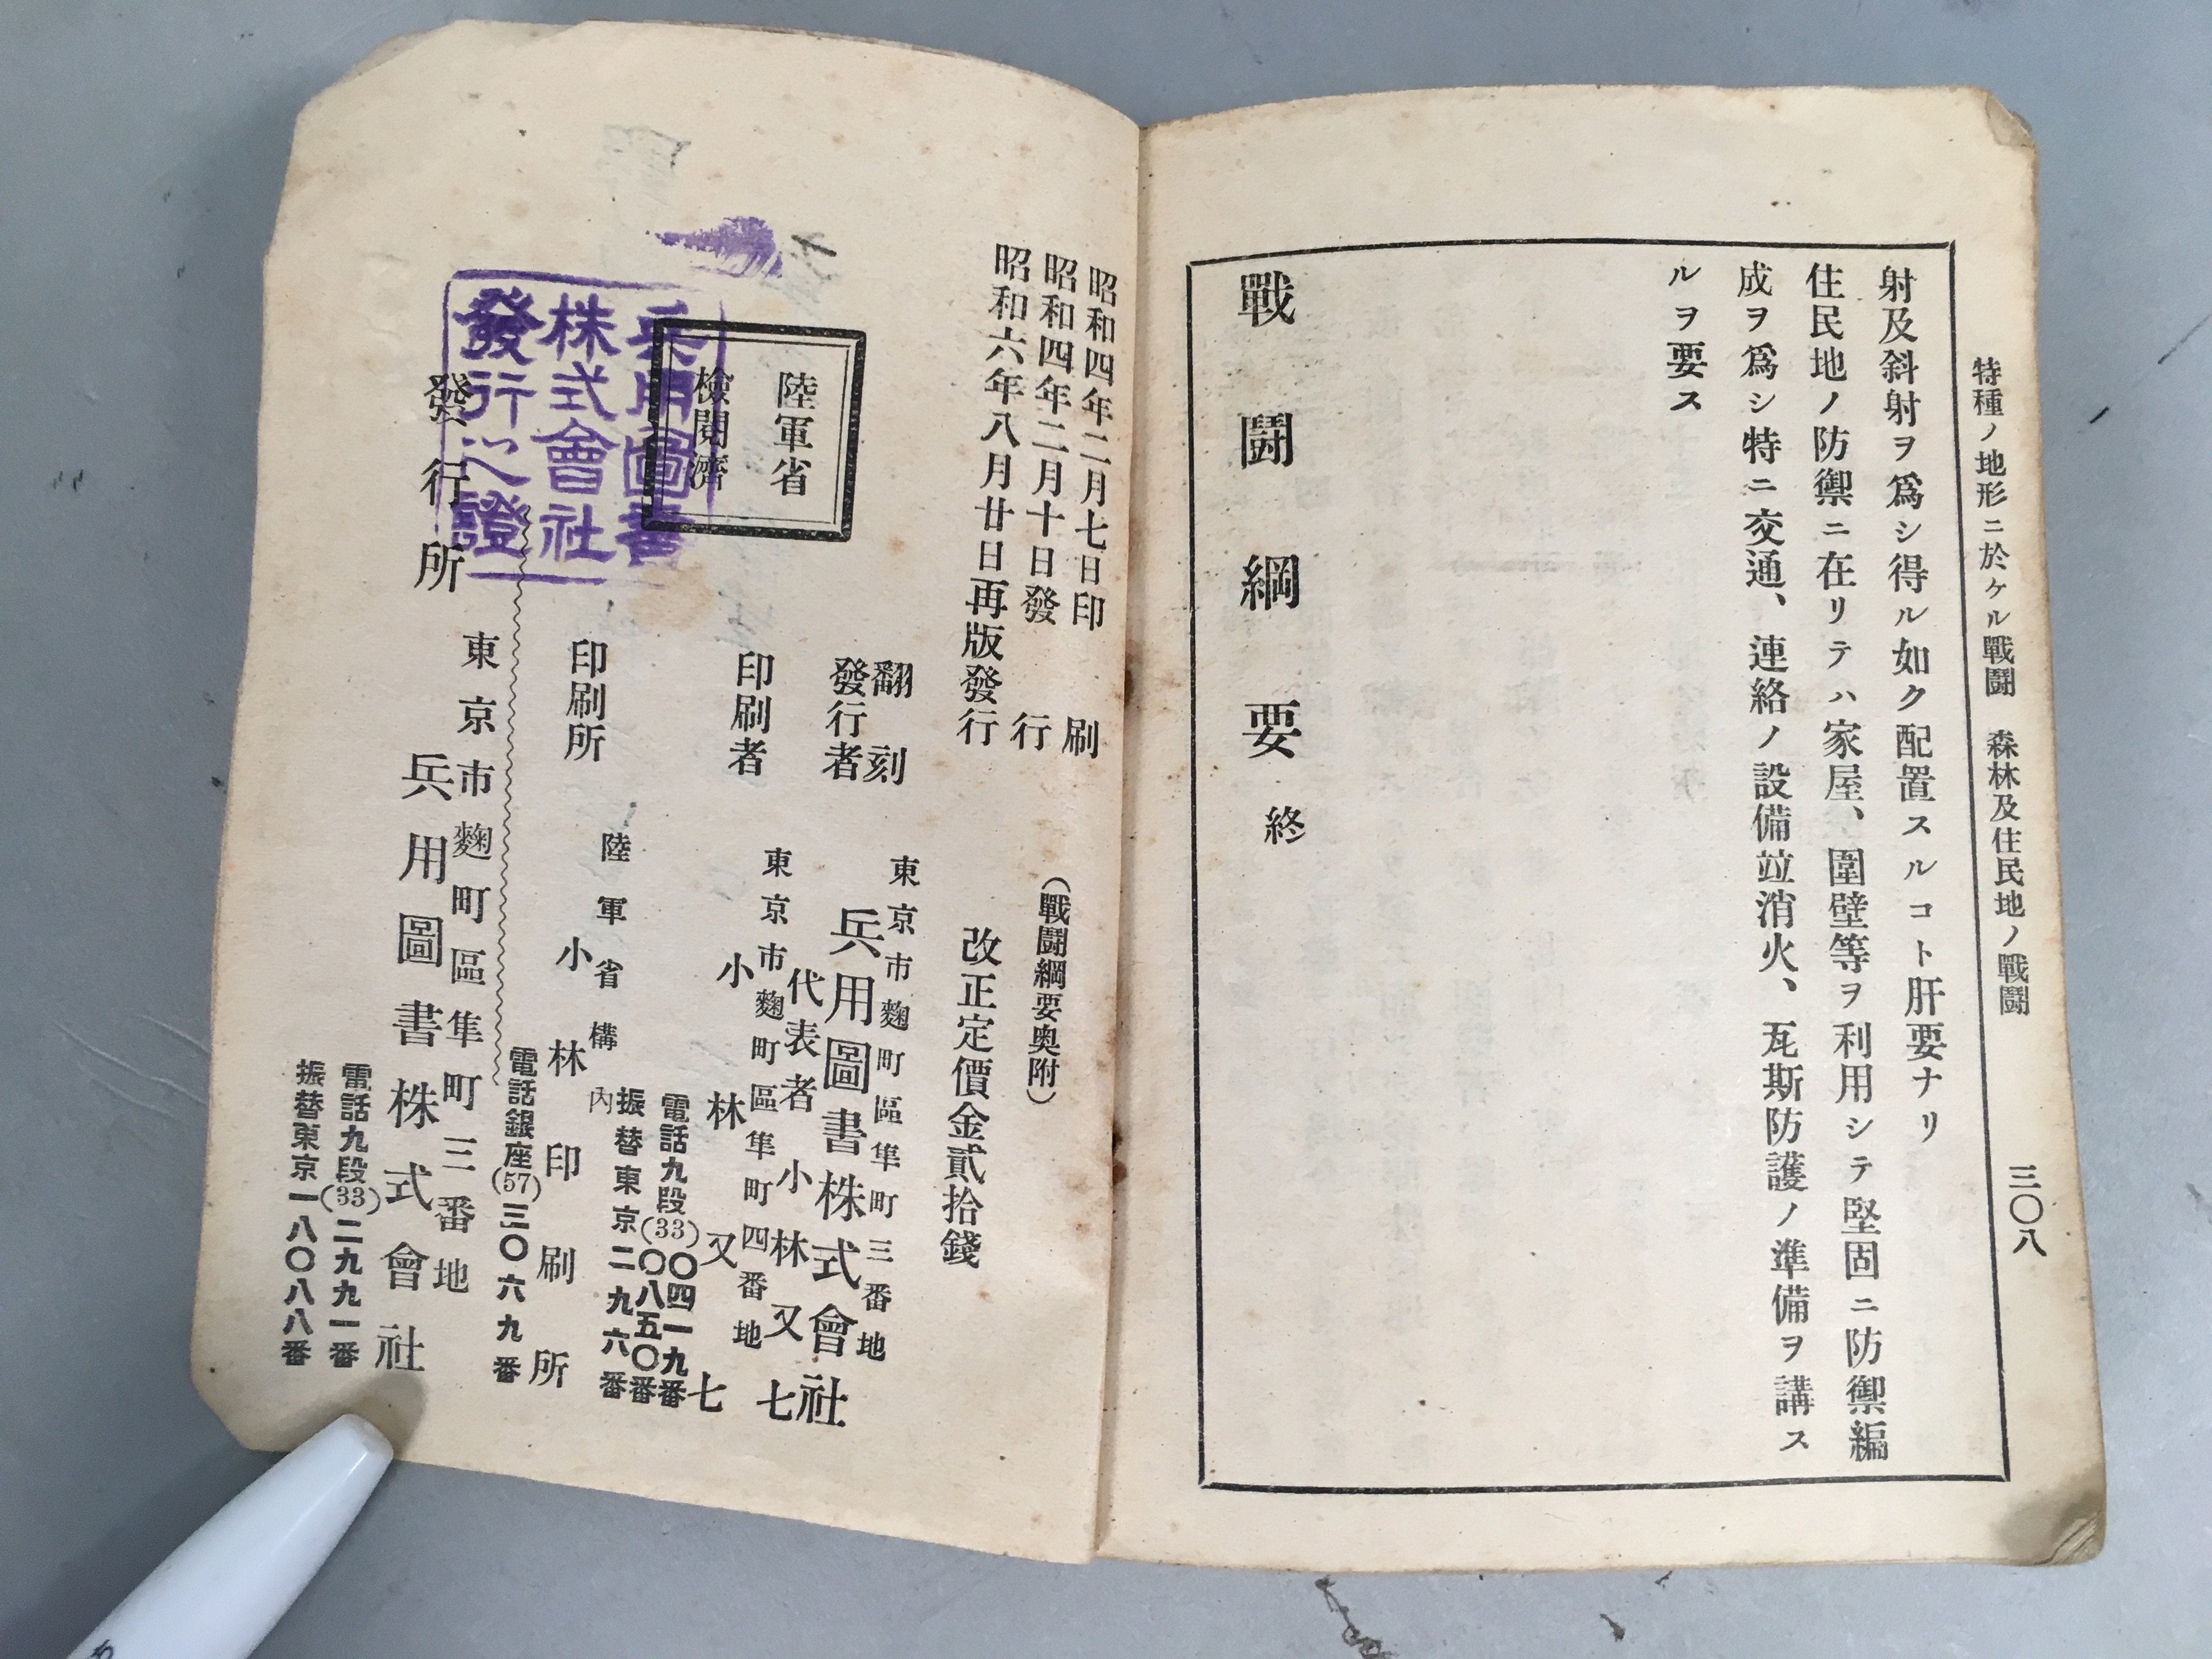 特種ノ地形ニ於ケル戰鬪　森林及住民地ノ戰鬪
三〇八
射及斜射ヲ爲シ得ル如ク配置スルコト肝要ナリ
住民地ノ防禦ニ在リテハ家屋、圍壁等ヲ利用シテ堅固ニ防禦編
成ヲ爲シ特ニ交通、連絡ノ設備竝消火、瓦斯防護ノ準備ヲ講ス
ルヲ要ス
戰鬪綱要終
昭和四年二月七日印刷
昭和四年二月十日發行
昭和六年八月廿日再版發行
（戰鬪綱要奧附）
改正定價金貳拾錢
陸軍省
檢閱濟
兵用圖書
株式會社
發行之證
翻刻
發行者
東京市麴町區隼町三番地
兵用圖書株式會社
代表者小林又七
印刷者
東京市麴町區隼町四番地
小林又七
電話九段(33)〇四一九番
〇八五〇番
振替東京二九六番
印刷所
陸軍省構內
小林印刷所
電話銀座(57)三〇六九番
發行所
東京市麴町區隼町三番地
兵用圖書株式會社
電話九段(33)二九九一番
振替東京一八〇八八番